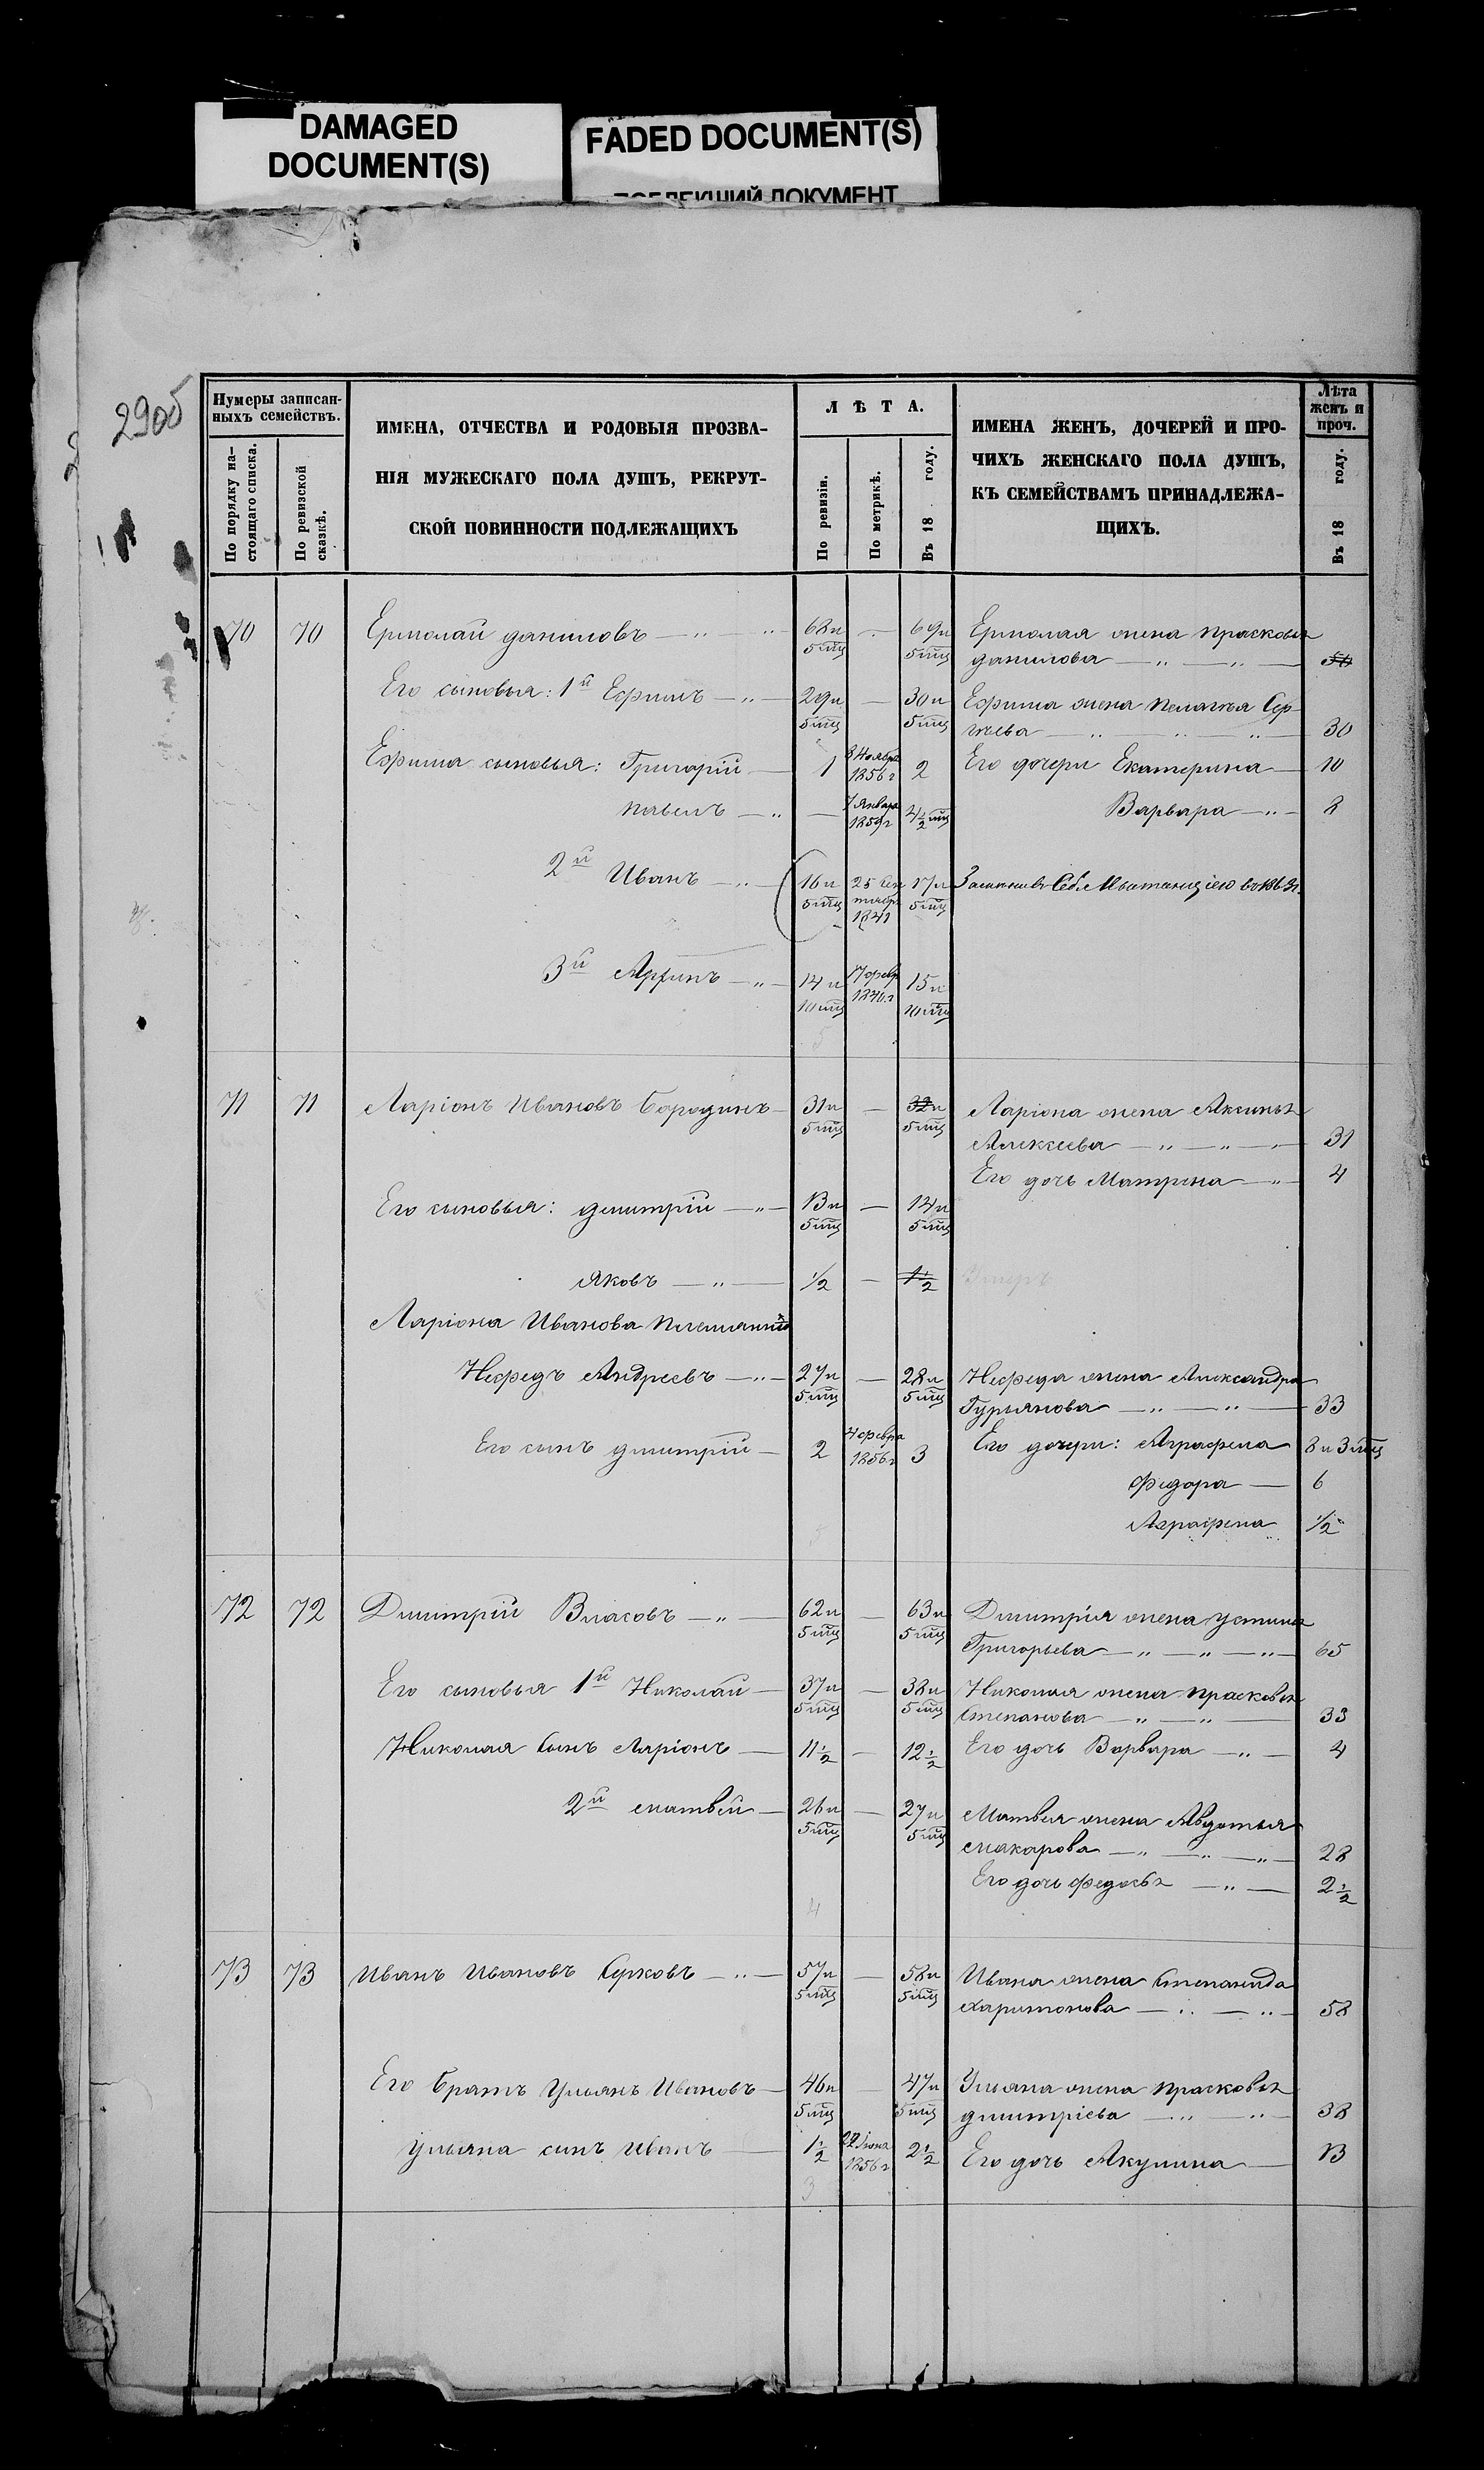 DAMAGED
DOCUMENT(S)
FADED DOCUMENT(S)
ДОКУМЕНТ
290б
Нумеры записан-
ныхъ семействъ.
По порядку на-
стоящаго списка.
По ревизской
сказкѣ.
ИМЕНА, ОТЧЕСТВА И РОДОВЫЯ ПРОЗВА-
НІЯ МУЖЕСКАГО ПОЛА ДУШЪ, РЕКРУТ-
СКОЙ ПОВИННОСТИ ПОДЛЕЖАЩИХЪ
ЛѢТА.
По ревизіи.
По метрикѣ.
Въ 18 году.
ИМЕНА ЖЕНЪ, ДОЧЕРЕЙ И ПРО-
ЧИХЪ ЖЕНСКАГО ПОЛА ДУШЪ,
КЪ СЕМЕЙСТВАМЪ ПРИНАДЛЕЖА-
ЩИХЪ.
Лѣта
женъ и
проч.
Въ 18 году.
70 70 Ермолай даниловъ — 68 и 5 мѣц — 69 и 5 мѣц Ермолая жена прасковья
данилова —
Его сыновья: 1й Ефимъ — 29 и 5 мѣц — 30 и 5 мѣц Ефима жена пелагѣя Сер-
гѣева — 30
Ефима сыновья: Григорій — 1 8 Ноября 1856 г 2 Его дочери Екатерина — 10
павелъ — — 7 Января 1859 г мѣц Варвара — 8
2й Иванъ — 16 и 5 мѣц 25 Сентября 1841 17 и 5 мѣц
3й — 14 и 10 мѣц 15 и 10 мѣц
71 71 Ларіонъ Ивановъ Бородинъ — 31 и 5 мѣц — 32 и 5 мѣц Ларіона жена Аксинья
Алексѣева — 31
Его дочь Матрена — 4
Его сыновья: дмитрій — 13 и 5 мѣц — 14 и 5 мѣц
Яковъ — 1/2 — 1 1/2 Умеръ
Ларіона Иванова племянникъ
Нефедъ Андреевъ — 27 и 5 мѣц — 28 и 5 мѣц Нефеда жена Александра
Гурьянова — 33
Его сынъ дмитрій — 2 4 февра 1856 г 3 Его дочери: Аграфена 8 и 3 мѣц
Федора — 6
Аграфена 1/2
72 72 Дмитрій Власовъ — 62 и 5 мѣц — 63 и 5 мѣц Дмитрія жена устинья
Григорьева — 65
Его сыновья 1й Николай — 37 и 5 мѣц — 38 и 5 мѣц Николая жена прасковья
Степанова — 33
Николая сынъ Ларіонъ — 11 1/2 — 12 1/2 Его дочь Варвара — 4
2й матвѣй — 26 и 5 мѣц — 27 и 5 мѣц Матвѣя жена Авдотья
макарова — 28
Его дочь федосья — 2 1/2
73 73 Иванъ Ивановъ Серковъ — 57 и 5 мѣц — 58 и 5 мѣц Ивана жена Степанида
харитонова — 58
Его братъ Ульянъ Ивановъ — 46 и 5 мѣц 47 и 5 мѣц Ульяна жена прасковья
дмитріева — 38
Ульяна сынъ иванъ — 1 1/2 1856 г 2 1/2 Его дочь Акулина — 13